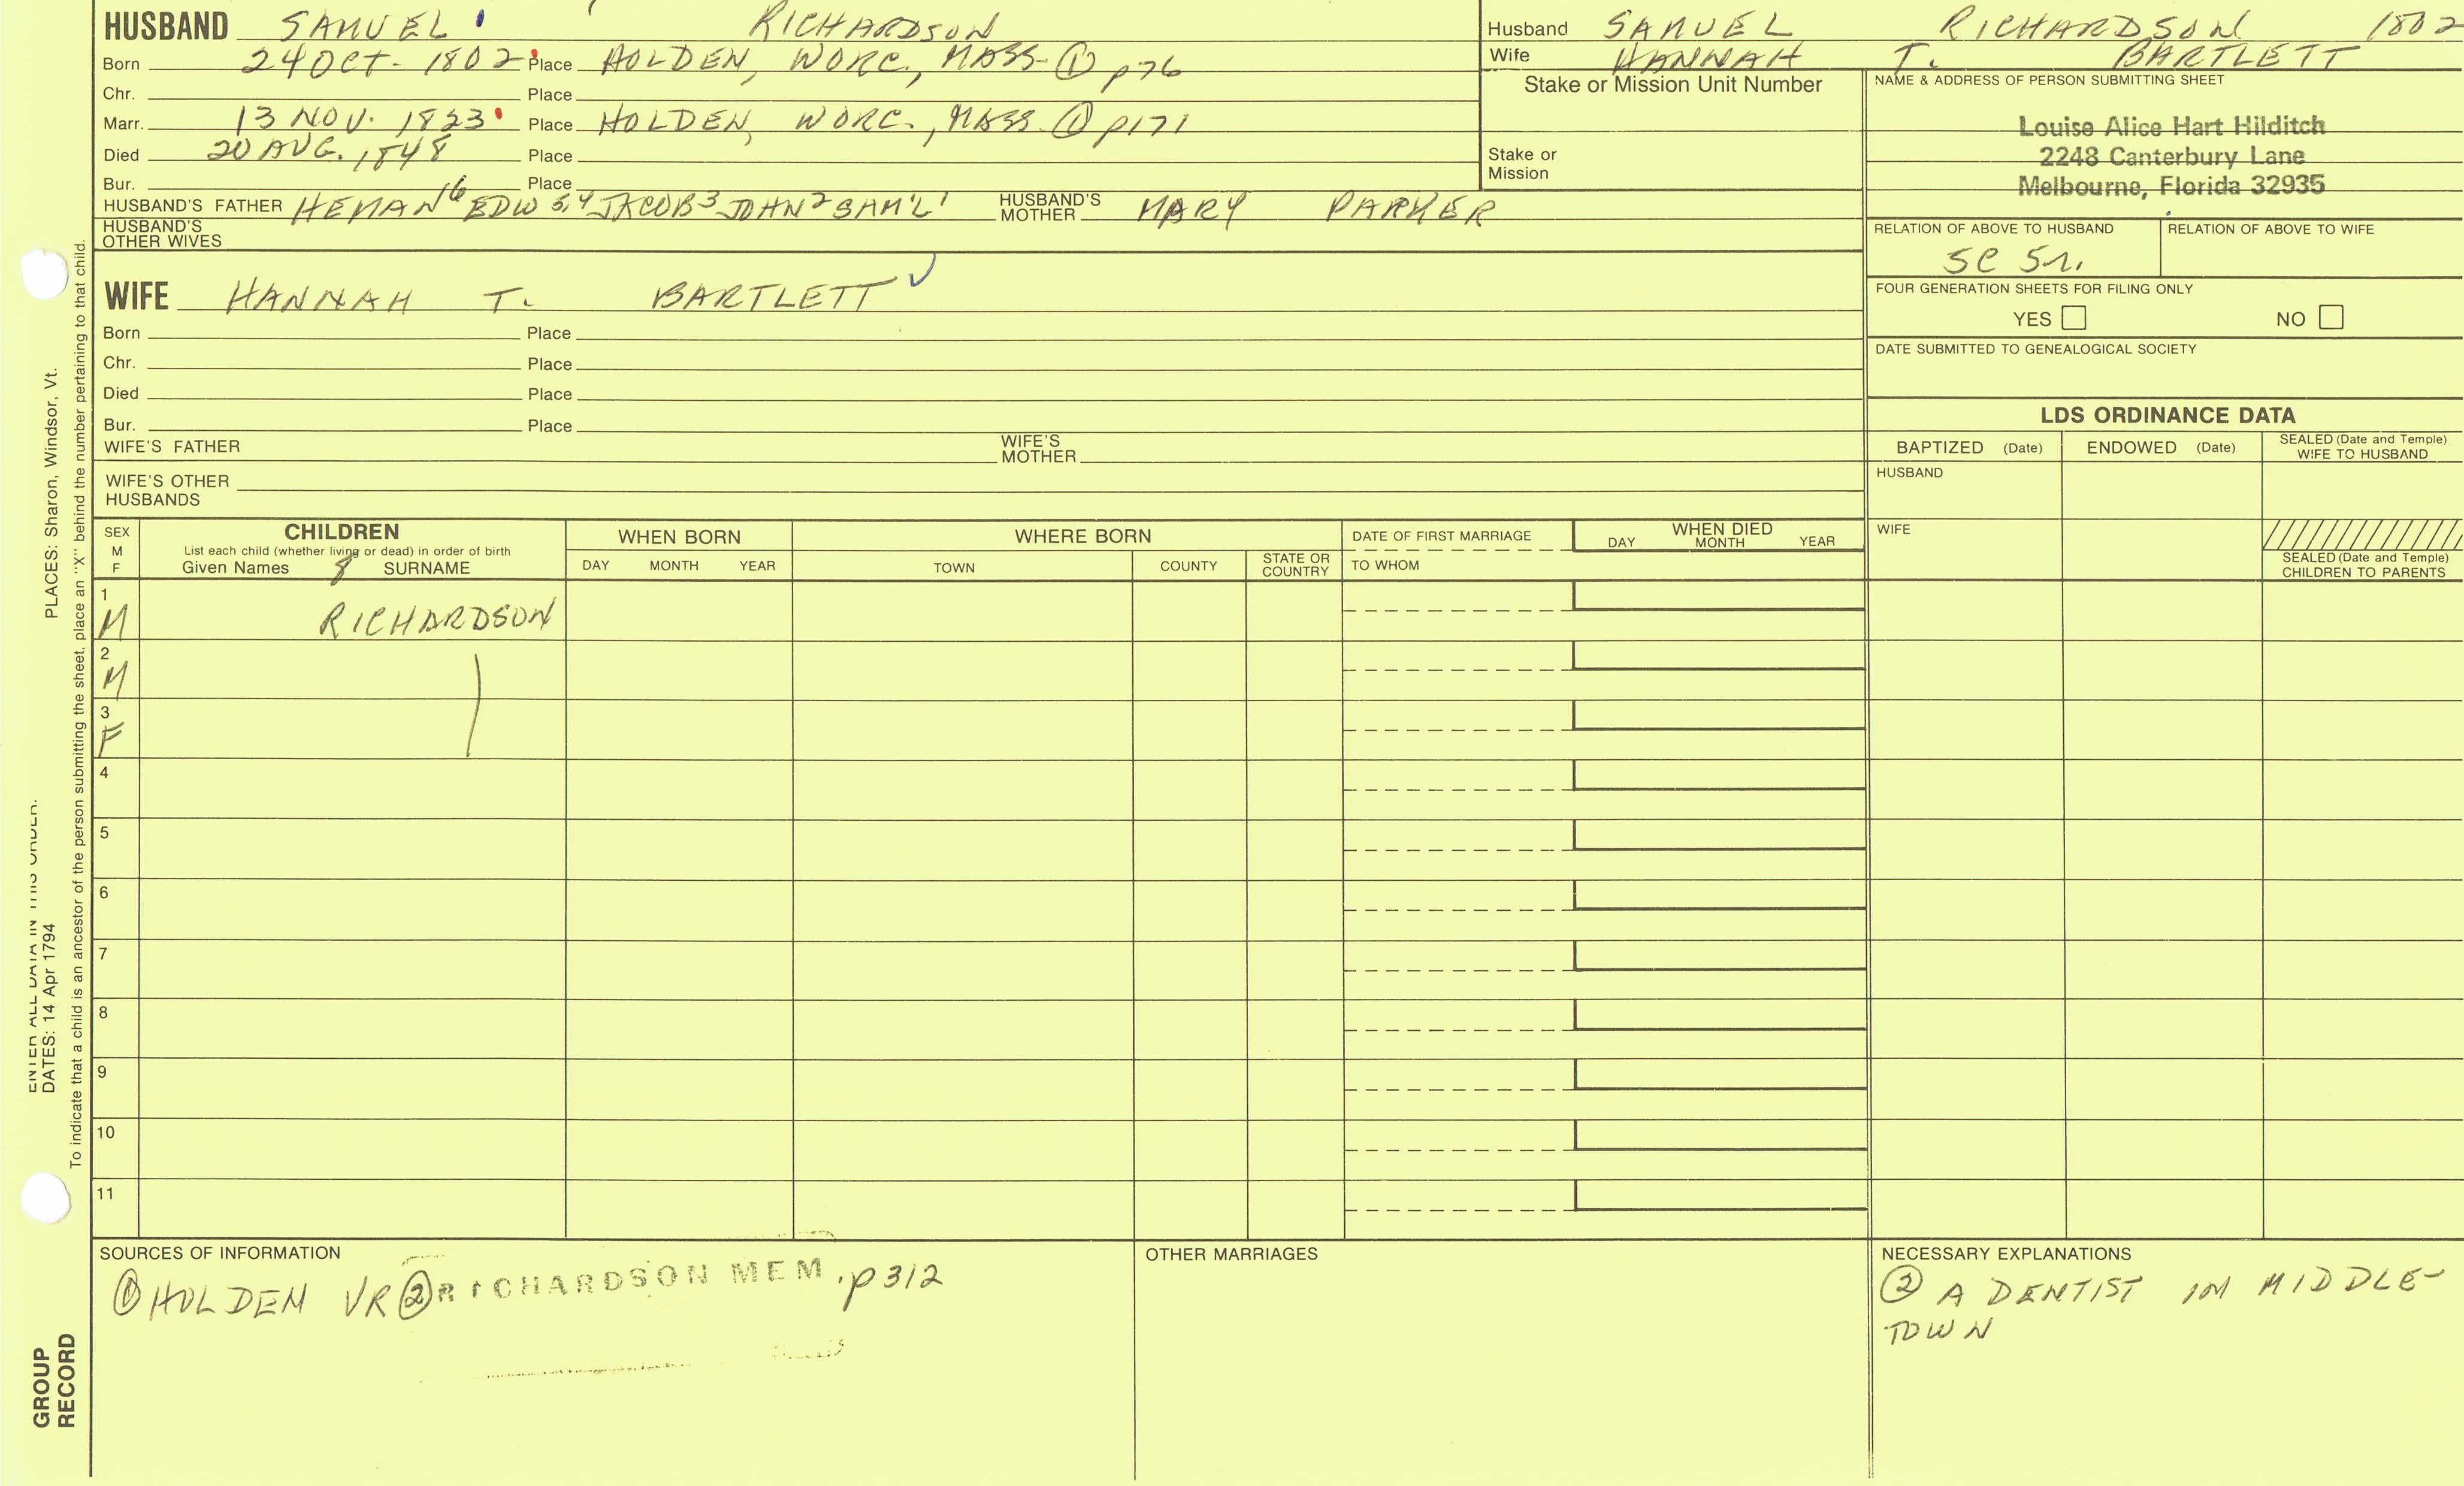 HUSBAND SAMUEL RICHARDSON
Born 24 OCT. 1802 Place HOLDEN, WORC., MASS. ① p76
Chr. Place
Marr. 13 NOV. 1823 Place HOLDEN, WORC., MASS. ① p171
Died 20 AUG. 1848 Place
Bur. Place
HUSBAND'S FATHER HEMAN 6 EDW 5,4 JACOB 3 JOHN 2 SAM'L 1 HUSBAND'S MOTHER MARY PARKER
HUSBAND'S OTHER WIVES
WIFE HANNAH T. BARTLETT
Born Place
Chr. Place
Died Place
Bur. Place
WIFE'S FATHER WIFE'S MOTHER
WIFE'S OTHER HUSBANDS
Husband SAMUEL RICHARDSON 1802
Wife HANNAH T. BARTLETT
Stake or Mission Unit Number
Stake or Mission
NAME & ADDRESS OF PERSON SUBMITTING SHEET
Louise Alice Hart Hilditch
2248 Canterbury Lane
Melbourne, Florida 32935
RELATION OF ABOVE TO HUSBAND RELATION OF ABOVE TO WIFE
5C 5r.
FOUR GENERATION SHEETS FOR FILING ONLY
YES NO
DATE SUBMITTED TO GENEALOGICAL SOCIETY
LDS ORDINANCE DATA
BAPTIZED (Date) ENDOWED (Date) SEALED (Date and Temple) WIFE TO HUSBAND
HUSBAND
WIFE
SEALED (Date and Temple) CHILDREN TO PARENTS
SEX M F
CHILDREN
List each child (whether living or dead) in order of birth
Given Names 8 SURNAME
WHEN BORN
DAY MONTH YEAR
WHERE BORN
TOWN COUNTY STATE OR COUNTRY
DATE OF FIRST MARRIAGE
TO WHOM
WHEN DIED
DAY MONTH YEAR
1 M RICHARDSON
2 M
3 F
4
5
6
7
8
9
10
11
SOURCES OF INFORMATION
① HOLDEN VR ② RICHARDSON MEM. p312
OTHER MARRIAGES
NECESSARY EXPLANATIONS
② A DENTIST IN MIDDLE-
TOWN
PLACES: Sharon, Windsor, Vt.
To indicate that a child is an ancestor of the person submitting the sheet, place an "X" behind the number pertaining to that child.
ENTER ALL DATA IN THIS ORDER:
DATES: 14 Apr 1794
GROUP
RECORD